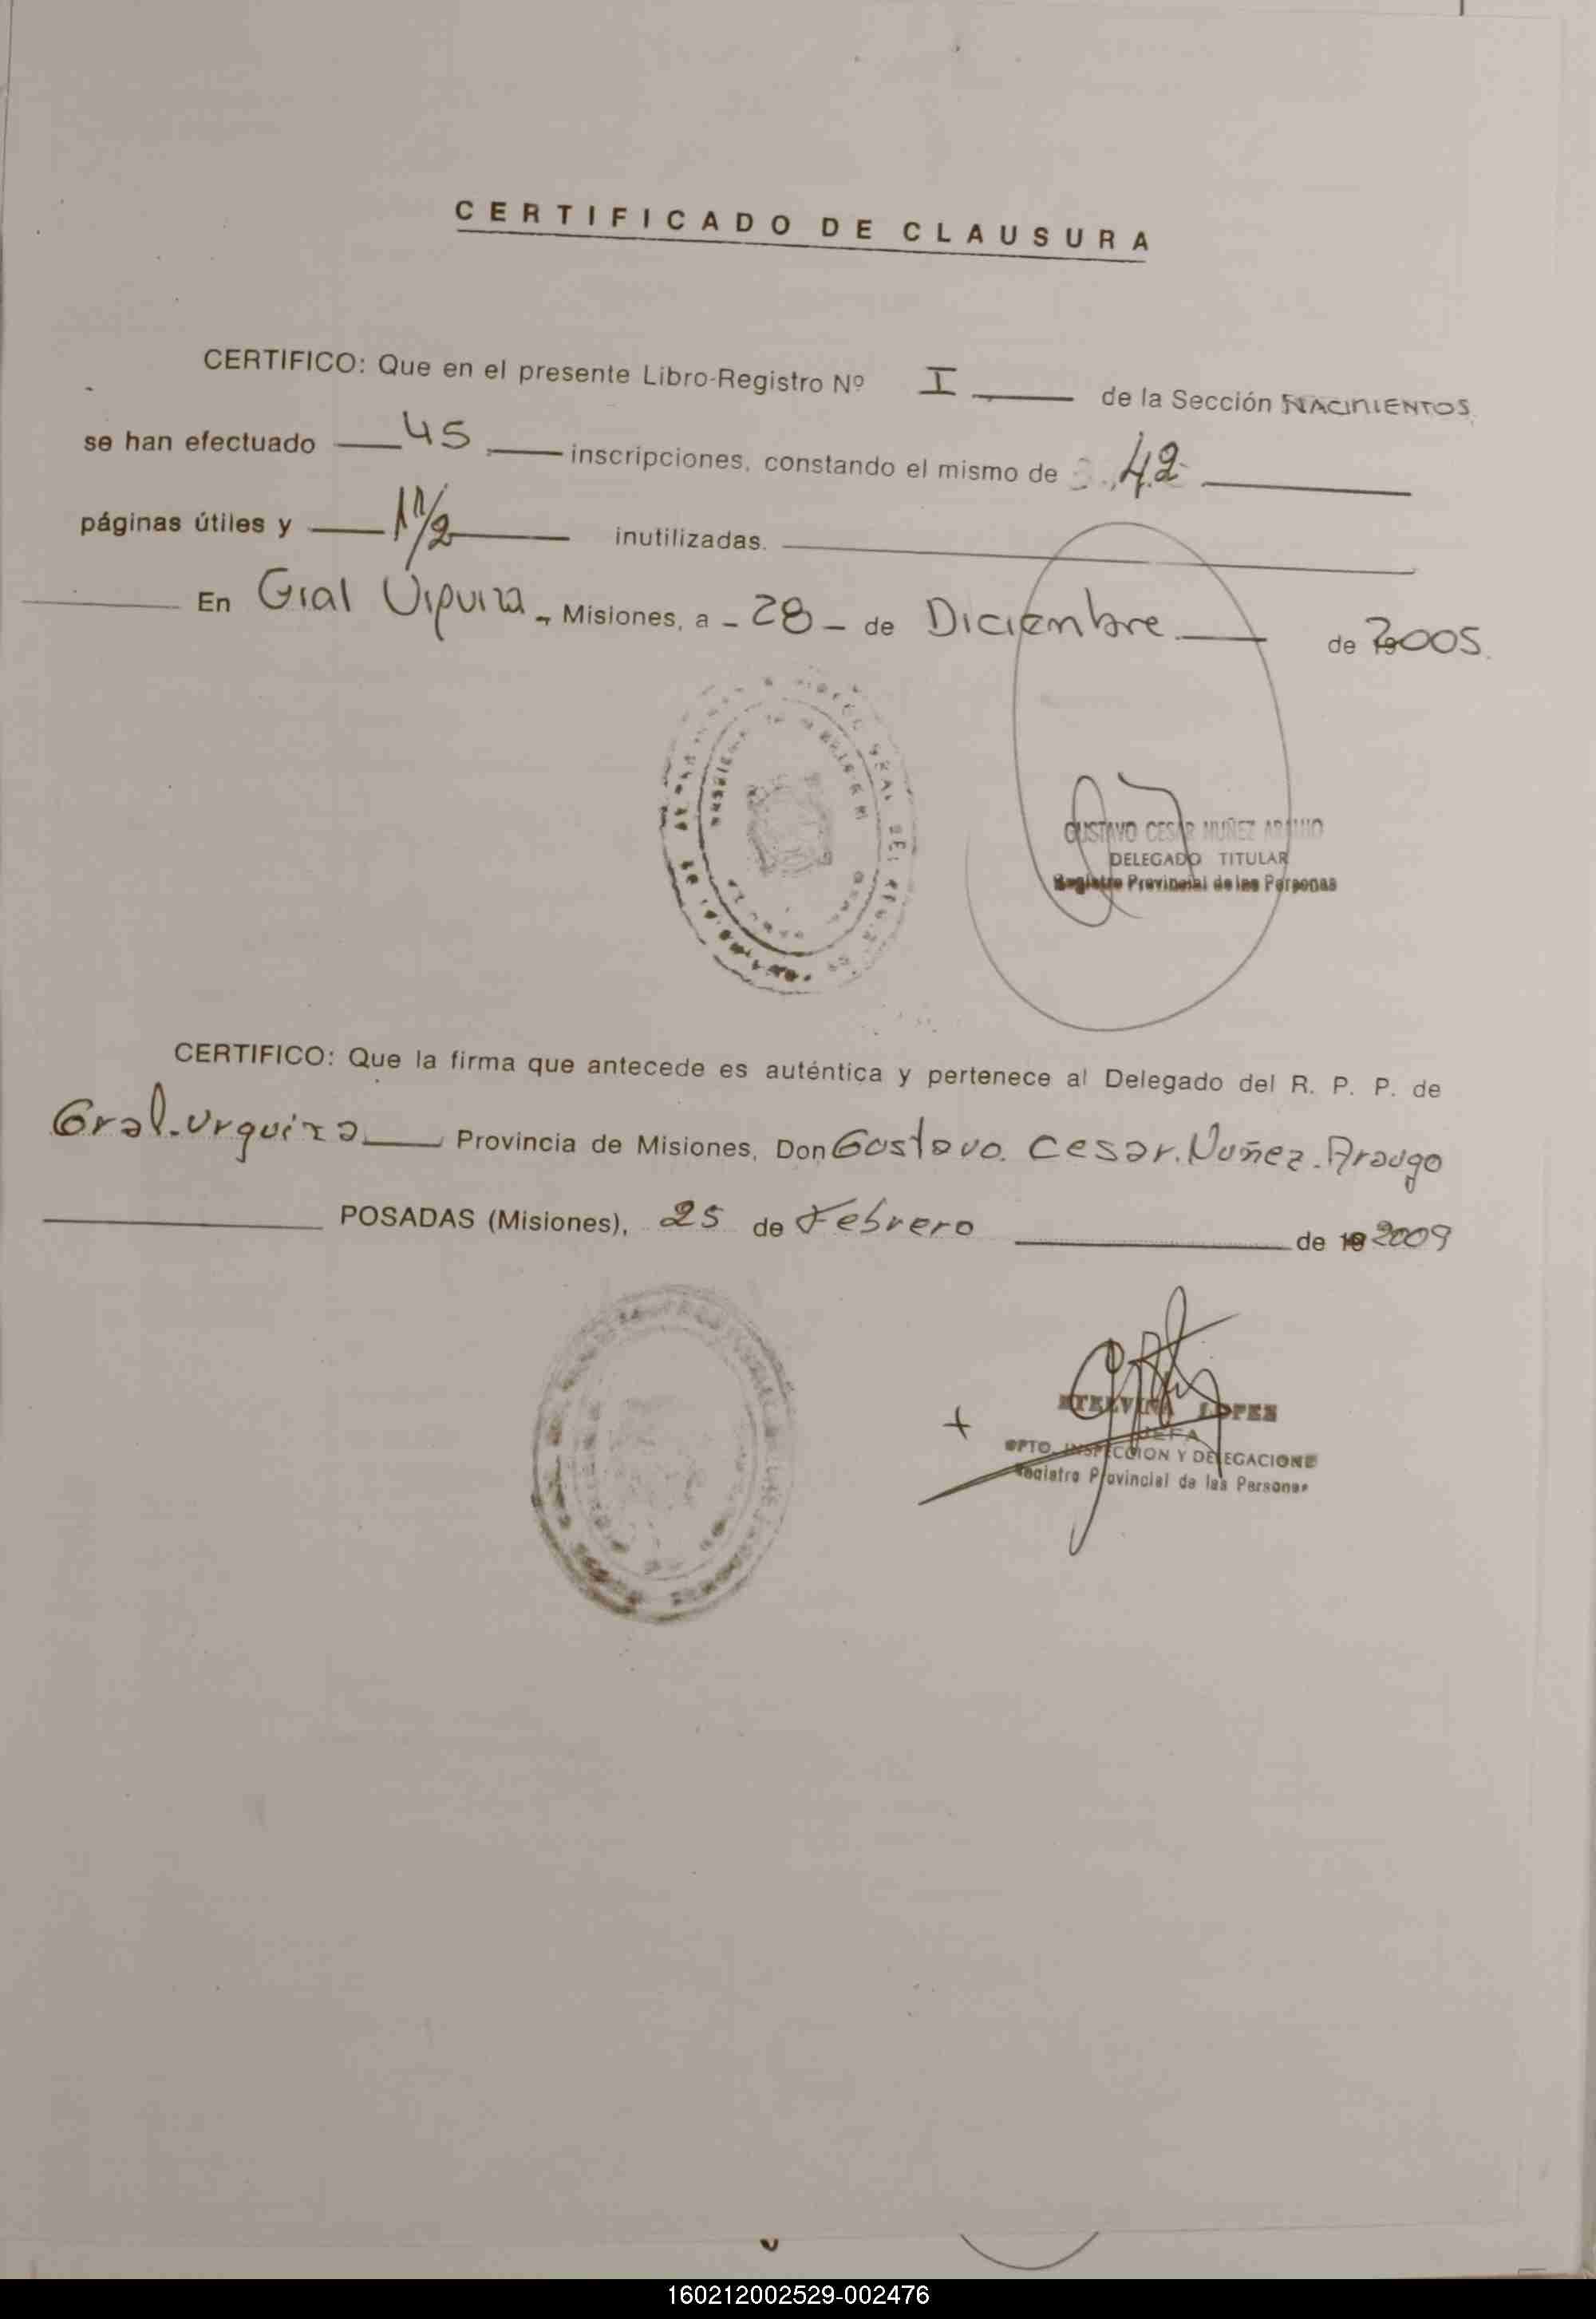 CERTIFICADO DE CLAUSURA
CERTIFICO: Que en el presente Libro-Registro Nº I de la Sección NACIMIENTOS
se han efectuado 45 inscripciones, constando el mismo de 42
páginas útiles y 1 1/2 inutilizadas.
En Gral Urquiza, Misiones, a - 28 - de Diciembre de 2005.
GUSTAVO CESAR NUÑEZ ARAUJO
DELEGADO TITULAR
Registro Provincial de las Personas
CERTIFICO: Que la firma que antecede es auténtica y pertenece al Delegado del R. P. P. de
Gral. Urquiza Provincia de Misiones, Don Gustavo. Cesar. Nuñez. Araugo
POSADAS (Misiones), 25 de Febrero de 2009
ETELVINA LOPEZ
JEFA
DPTO. INSPECCION Y DELEGACIONE
Registro Provincial de las Personas
160212002529-002476